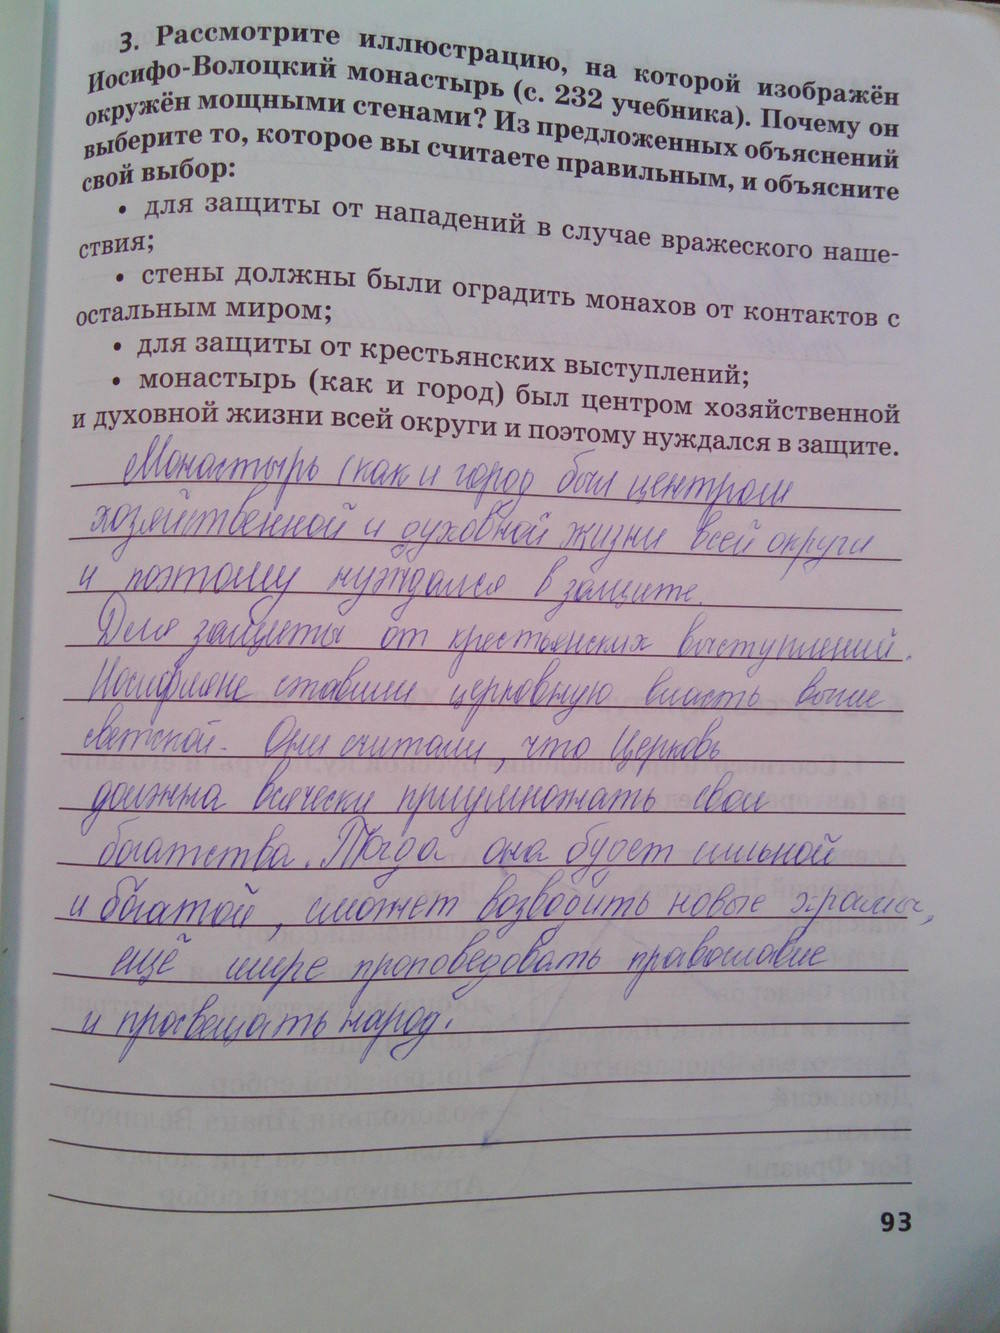 3. Рассмотрите иллюстрацию, на которой изображён
Иосифо-Волоцкий монастырь (с. 232 учебника). Почему он
окружён мощными стенами? Из предложенных объяснений
выберите то, которое вы считаете правильным, и объясните
свой выбор:
• для защиты от нападений в случае вражеского наше-
ствия;
• стены должны были оградить монахов от контактов с
остальным миром;
• для защиты от крестьянских выступлений;
• монастырь (как и город) был центром хозяйственной
и духовной жизни всей округи и поэтому нуждался в защите.
Монастырь (как и город был центром
хозяйственной и духовной жизни всей округи
и поэтому нуждался в защите.
Для защиты от крестьянских выступлений.
Иосифляне ставили церковную власть выше
светской. Они считали, что Церковь
должна всячески приумножать свои
богатства. Тогда она будет сильной
и богатой, сможет возводить новые храмы,
ещё шире проповедовать православие
и просвещать народ.
93